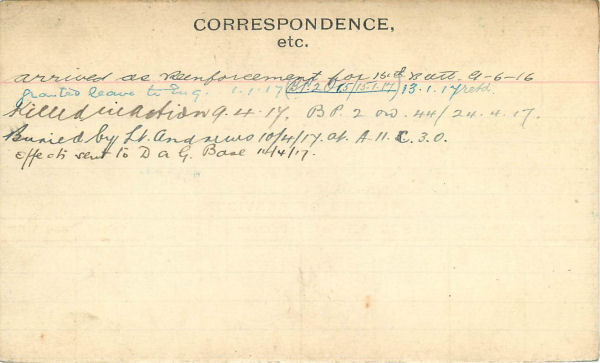 CORRESPONDENCE,
etc.
arrived as Reinforcement for 15th Batt. 9-6-16
granted leave to Eng. 1.1.17 (B.P.2 O 15/15.1.17) 13.1.17 retd.
Killed in action 9.4.17. B P. 2 ord. 44/24.4.17.
Buried by Lt. Andrews 10/4/17. at. A 11. C. 3.0.
Effects sent to D a G. Base 14/4/17.